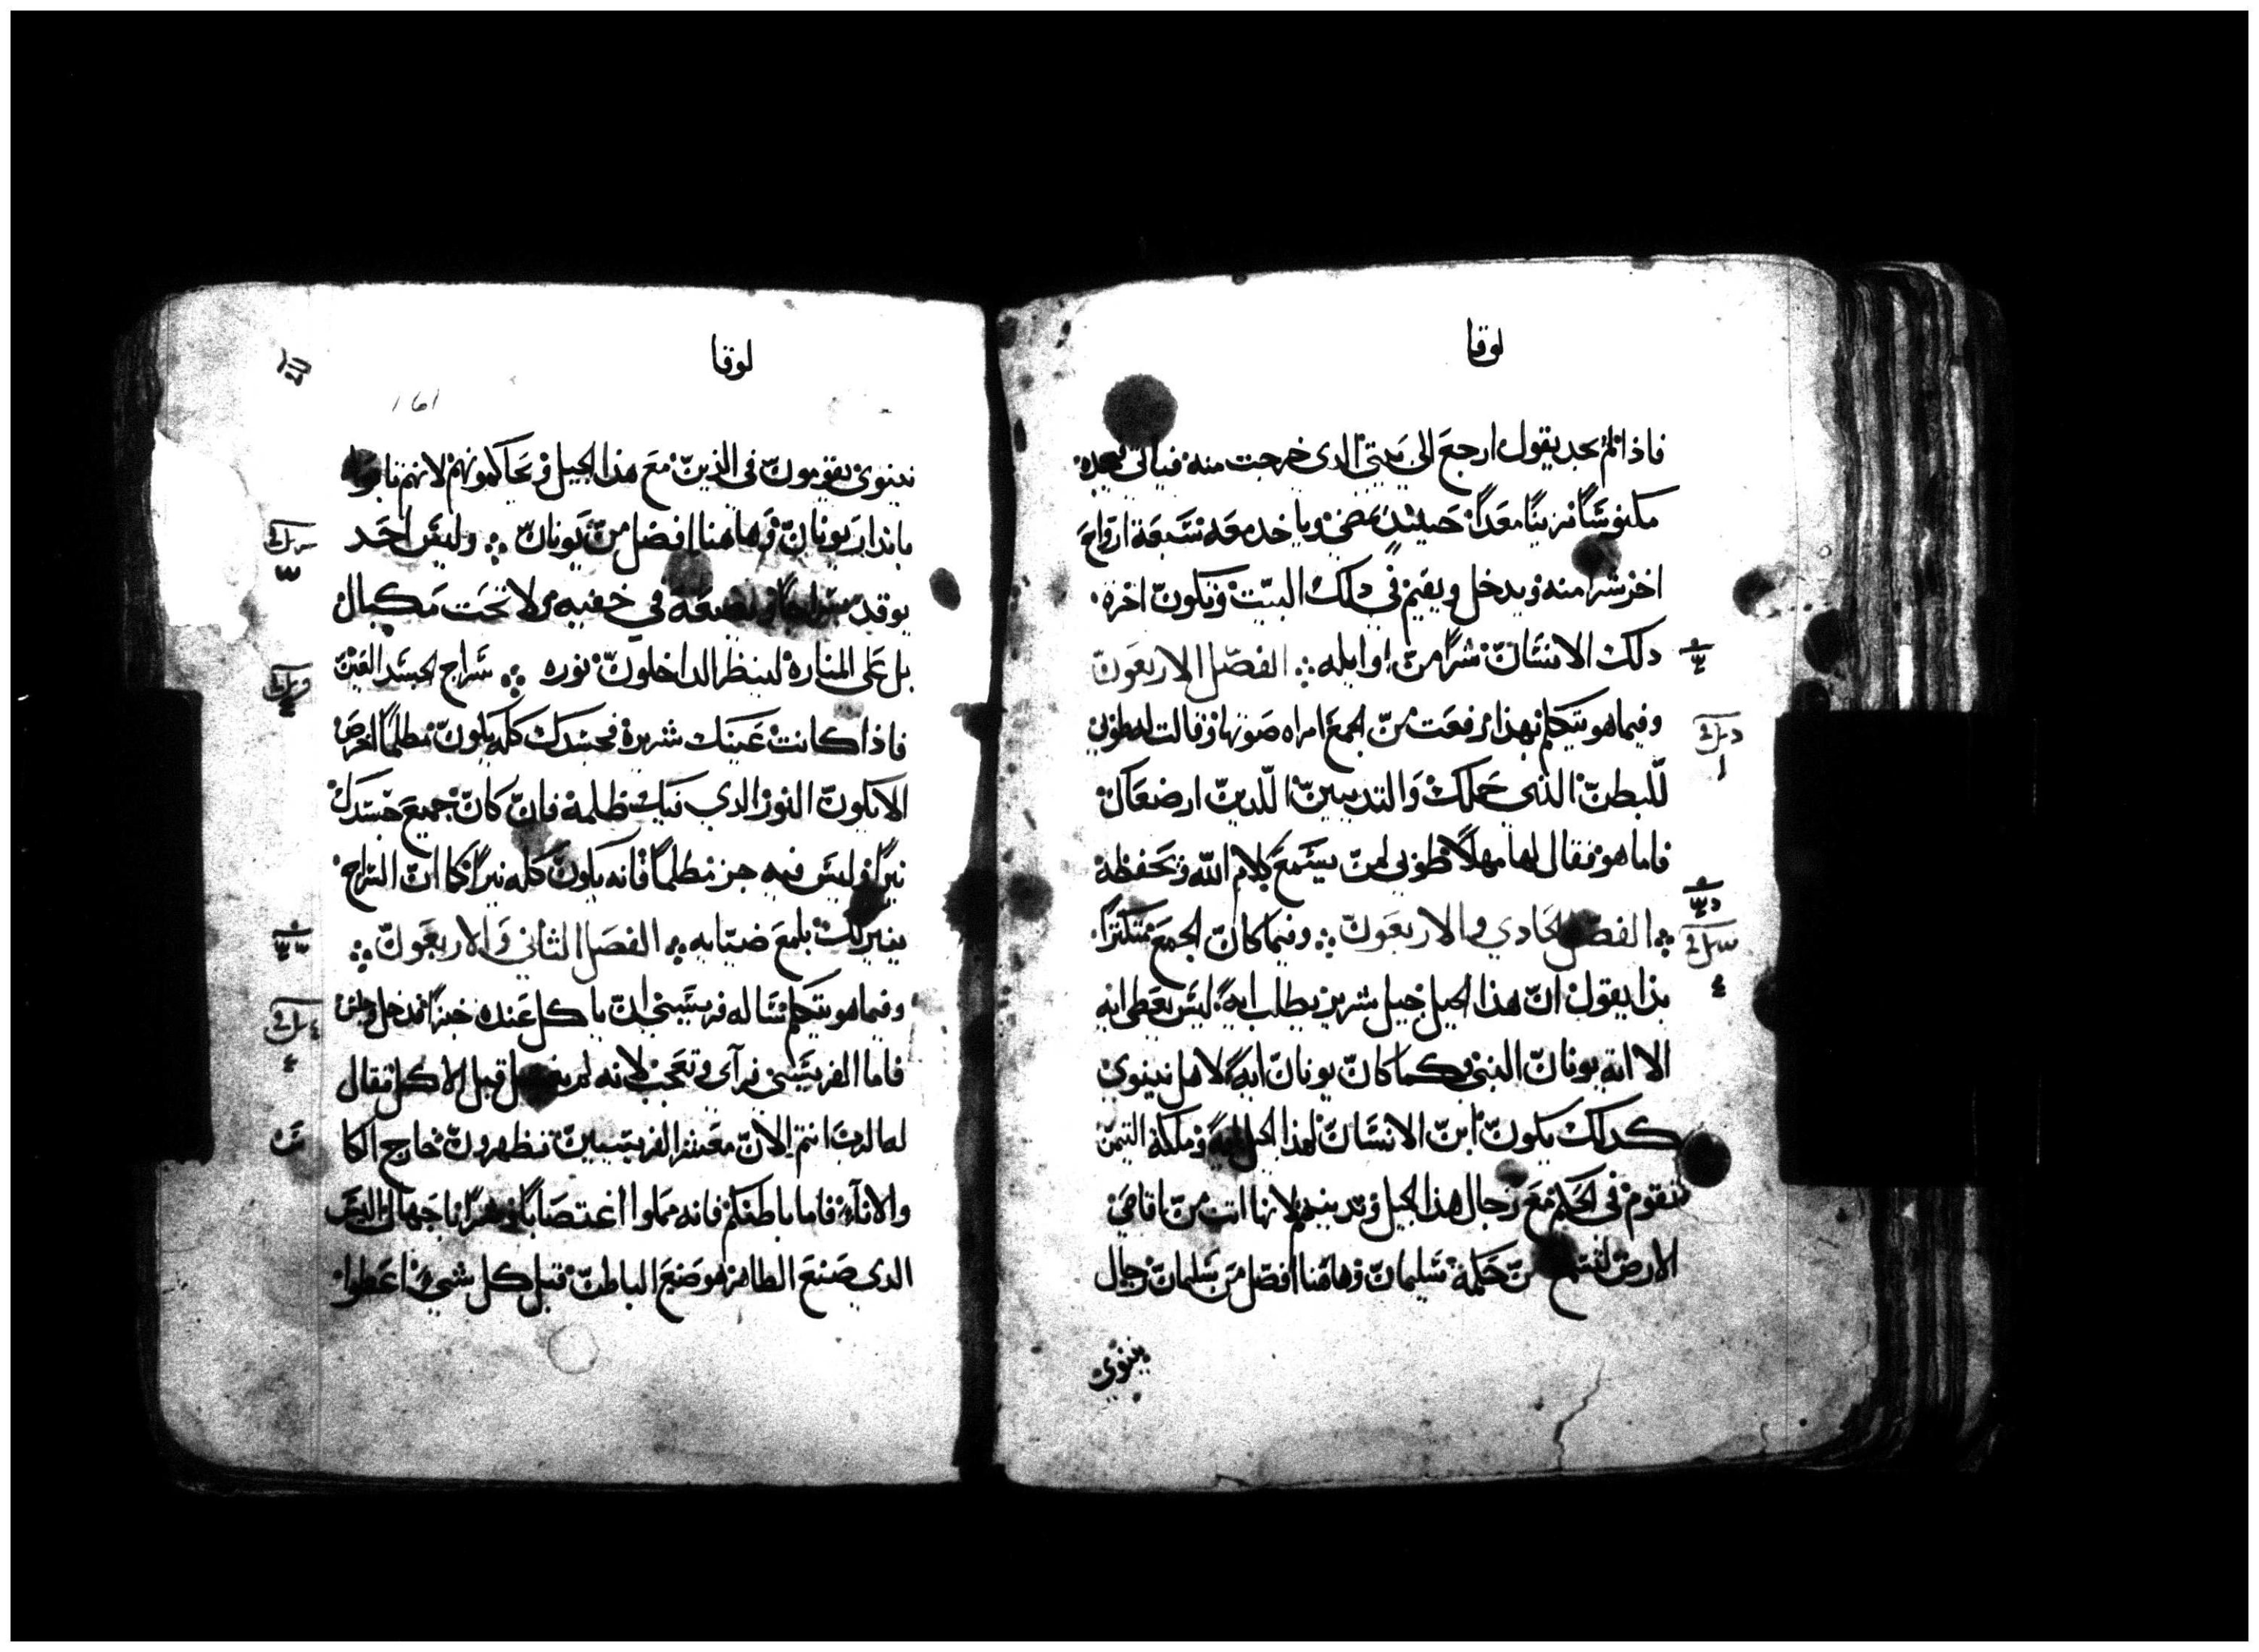 لوقا
فاذا لم يجد يقول ارجع الي بيتي الدي خرجت منه فياتي فيجده
مكنوسًا مزينًا معدًا حينيذ يمضي وياخد معه سبعة ارواح
اخر شرًا منه ويدخل ويقيم في دلك البيت وتكون اخرة
دلك الانسان شرًا من اوايله الفصل الاربعون
وفيما هو يتكلم بهذا رفعت من الجمع امراه صوتها وقالت له طوبي
للبطن التي حملك والتديين اللدين ارضعاك
فاما هو فقال لها مهلًا طوبي لمن يسمع كلام الله ويحفظه
الفصل الحادي والاربعون وفيما كان الجمع متكثرًا
بدا يقول ان هذا الجيل جيل شرير يطلب ايةً ليس يعطي ايه
الا اية يونان النبي وكما كان يونان ايةً لاهل نينوي
كدلك يكون ابن الانسان لهذا الجيل ايةً وملكة التيمن
تقوم في الحكم مع رجال هذا الجيل وتدينهم لانها اتت من اقاصي
الارض لتسمع من حكمة سليمان وهاهنا افضل من سليمان رجال
نينوي
لوقا
161
نينوي يقومون في الدين مع هذا الجيل ويحاكمونهم لانهم تابوا
بانذار يونان وهاهنا افضل من يونان وليس احد
يوقد سراجًا ويضعه في خفيه ولا تحت مكيال
بل علي المناره لينظر الداخلون نوره سراج الجسد العين
فاذا كانت عينك شريرة فجسدك كله يكون مظلمًا احرص
الا يكون النور الدي فيك ظلمة فان كان جميع جسدك
نيرًا وليس فيه جز مظلمًا فانه يكون كله نيرًا كما ان السراج
ينير لك بلمع ضيايه الفصل الثاني والاربعون
وفيما هو يتكلم ساله فريسي ان ياكل عنده خبزًا فدخل وجلس
فاما الفريسي فرآي وتعجب لانه لم يغتسل قبل الاكل فقال
له الرب انتم الان معشر الفريسيين تطهرون خارج الكا
والانآء فاما باطنكم فانه مملوا اغتصابًا وشرًا يا جهال اليس
الدي صنع الظاهر هو صنع الباطن قبل كل شيء اعطوا